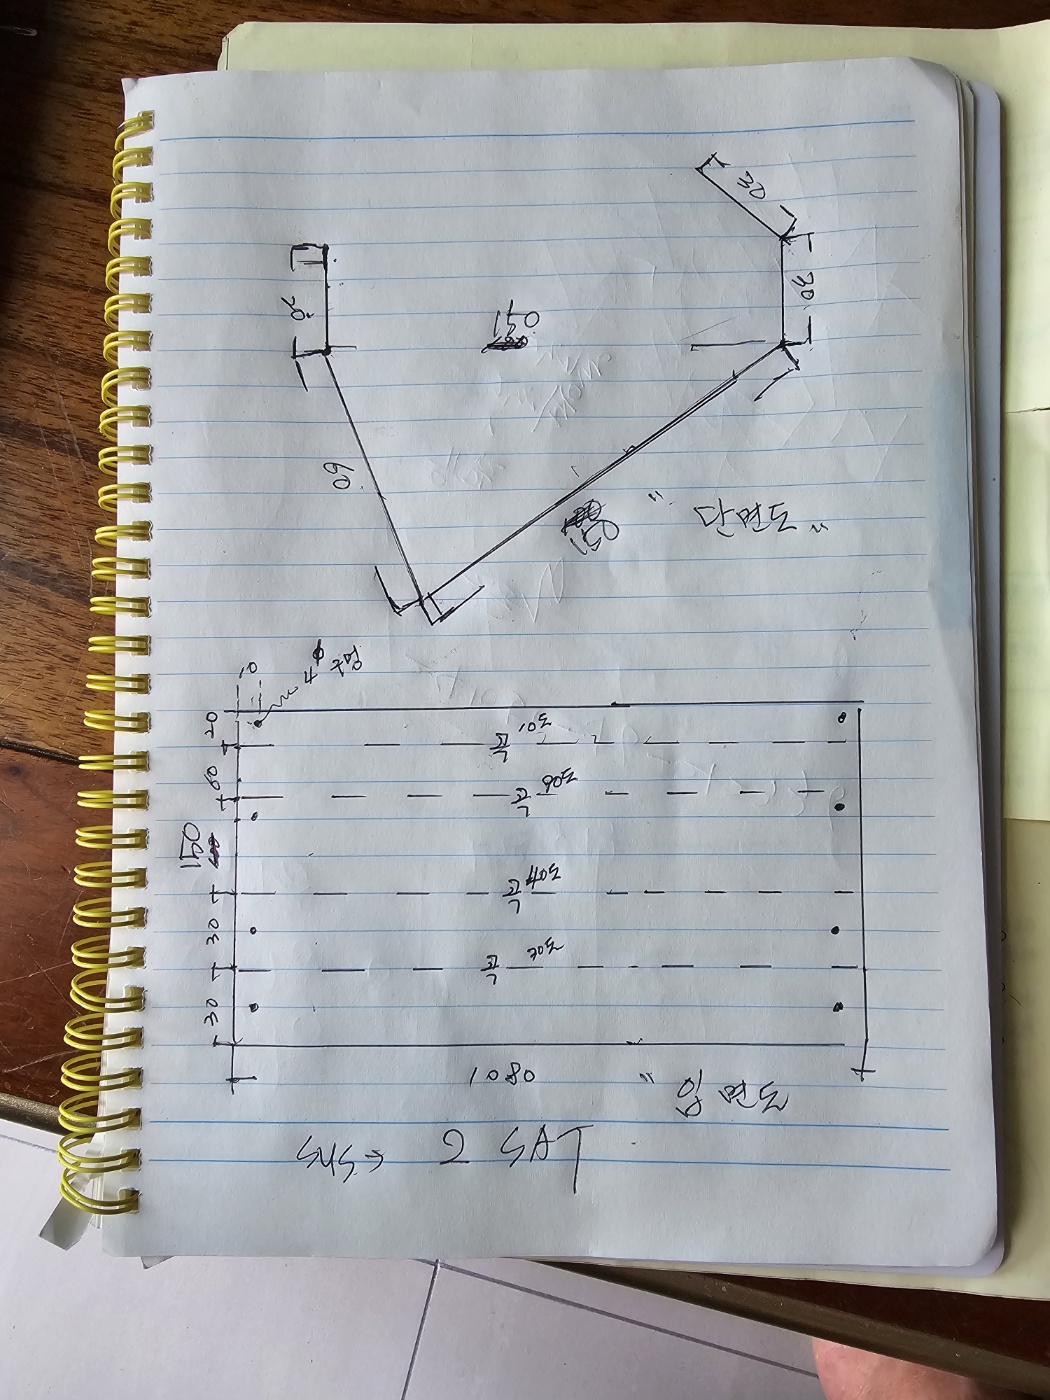 30
30
20
150
60
150
" 단면도 "
10
4φ 구멍
20
60
150
30
30
10도
90도
40도
1080
" 입면도
SUS→ 2 SAT